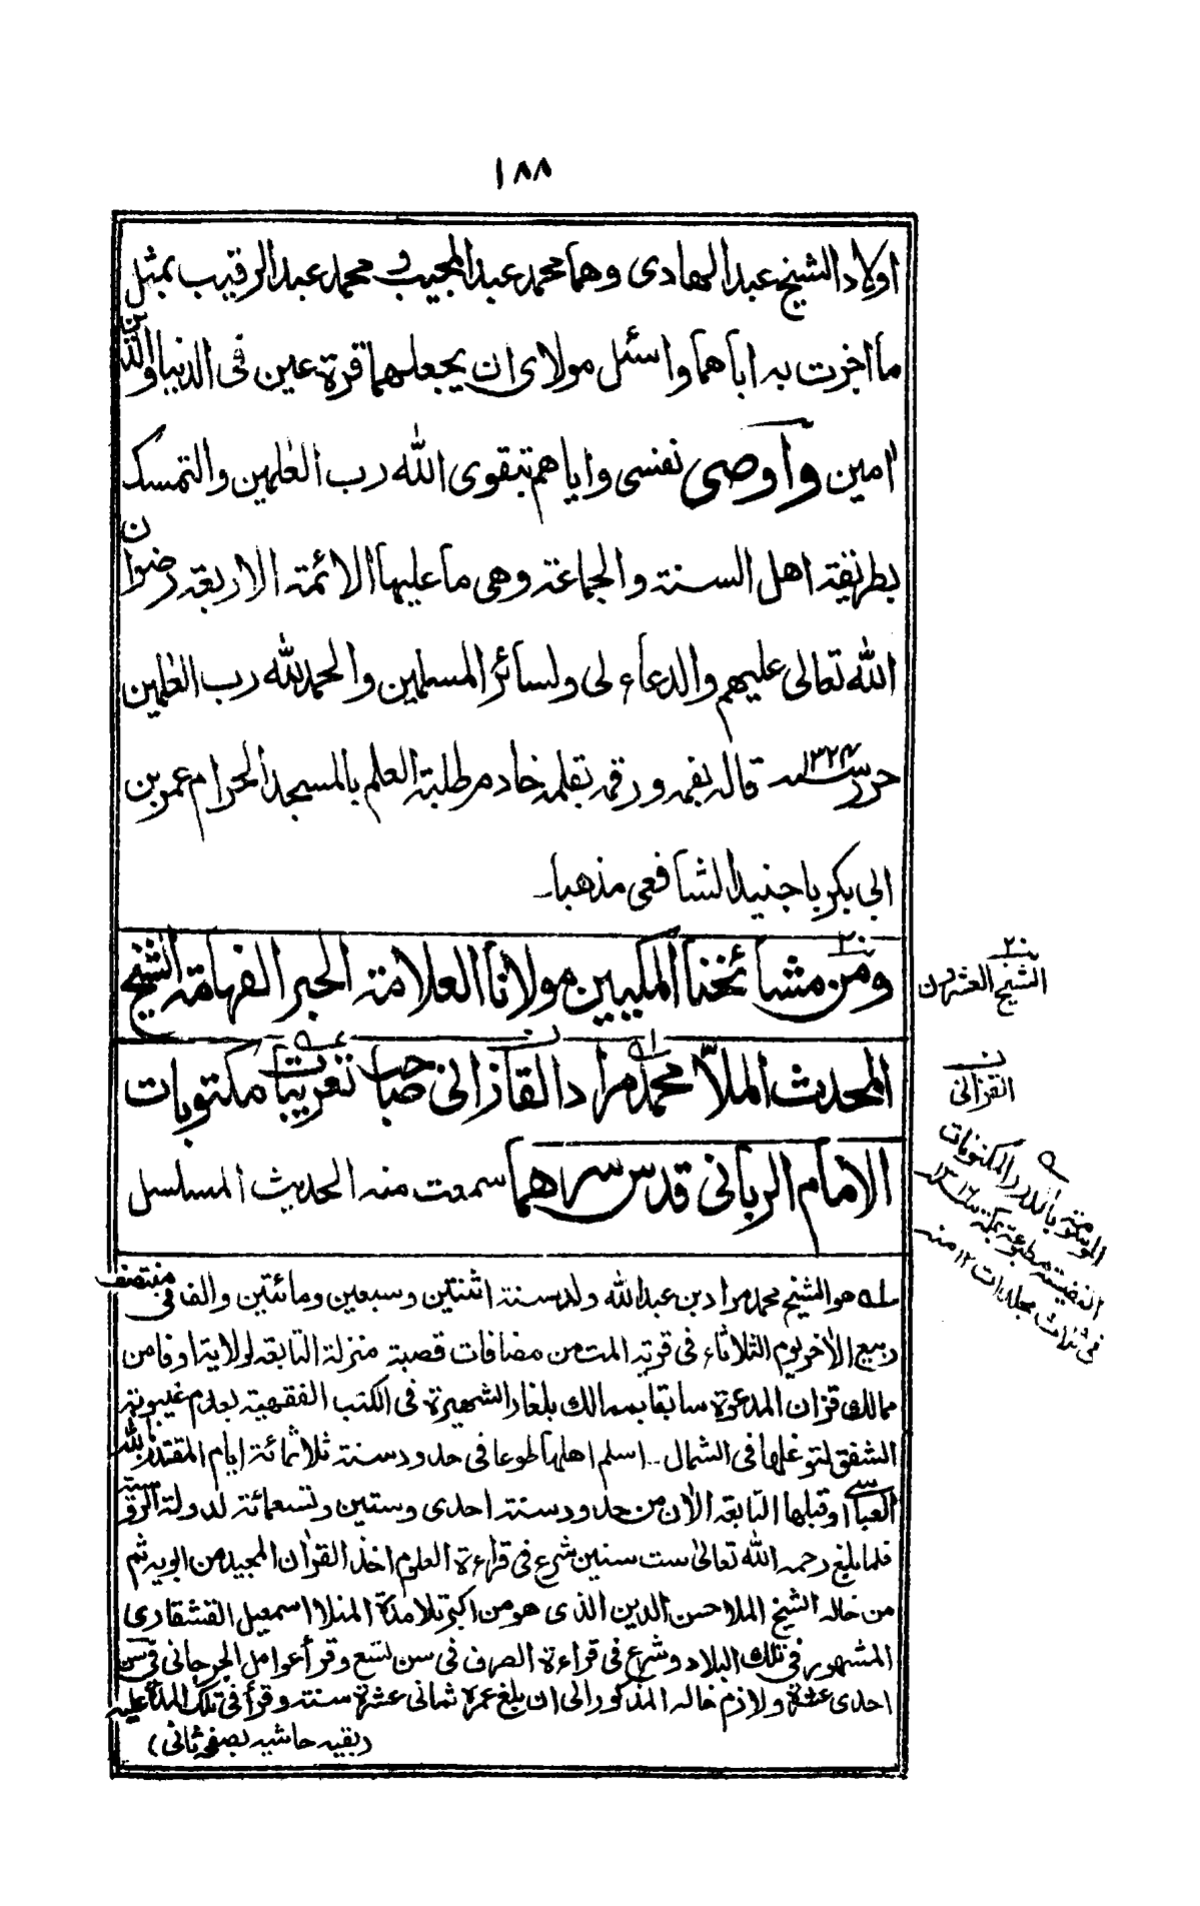 ١٨٨
اولاد الشيخ عبد الهادى وهما محمد عبد المجيب و محمد عبد الرقيب بمثل
ما اجزت به اباهما واسئل مولاى ان يجعلهما قرة عين فى الدنيا والدين
امين واوصى نفسى واياهم بتقوى الله رب العٰلمين والتمسك
بطريقة اهل السنة والجماعة وهى ما عليها الائمة الاربعة رضوان
الله تعالى عليهم والدعاء لى ولسائر المسلمين والحمد لله رب العٰلمين
حرر سنه ١٣٢٤ قاله بفمه ورقمه بقلمه خادم طلبة العلم بالمسجد الحرام عمر بن
ابى بكر باجنيد الشافعى مذهبا۔
ومن مشائخنا المكيين مولانا العلامة الحبر الفهامة الشيخ
المحدث الملا محمد مراد القازانى صاحب تعريبات مكتوبات
الامام الربانى قدس سرهما سمعت منه الحديث المسلسل
الشيخ العشرون ٢٠
القزانى ن
الموسومة بالدرر المكنونات
النفيسة مطبوعة بمكة سنه ١٣١٦
فى ثلاث مجلدات ١٢ منه
له هو الشيخ محمد مراد بن عبد الله ولد سنة اثنتين وسبعين ومائتين والف فى منتصف
ربيع الاٰخر يوم الثلاثاء فى قرية المت من مضافات قصبة منزلة التابعة لولاية اوفا من
ممالك قزان المدعوة سابقا بممالك بلغار الشهيرة فى الكتب الفقهية بعدم غيبوبة
الشفق لتوغلها فى الشمال۔ اسلم اهلها طوعا فى حدود سنة ثلاثمائة ايام المقتدر بالله
العباسى اوقبلها التابعة الاٰن من حدود سنة احدى وستين وتسعمائة لدولة الروسية
فلما بلغ رحمه الله تعالىٰ ست سنين شرع فى قراءة العلوم اخذ القراٰن المجيد من ابويه ثم
من خاله الشيخ الملا حسن الدين الذى هو من اكبر تلامذة المنلا اسمعيل القشقارى
المشهور فى تلك البلاد وشرع فى قراءة الصرف فى سن تسع وقرأ عوامل الجرجانى فى سن
احدى عشرة ولازم خاله المذكور الى ان بلغ عمره ثمانى عشرة سنة وقرأ فى تلك المدة عليه
(بقيه حاشيه بصفحہ ثانى)